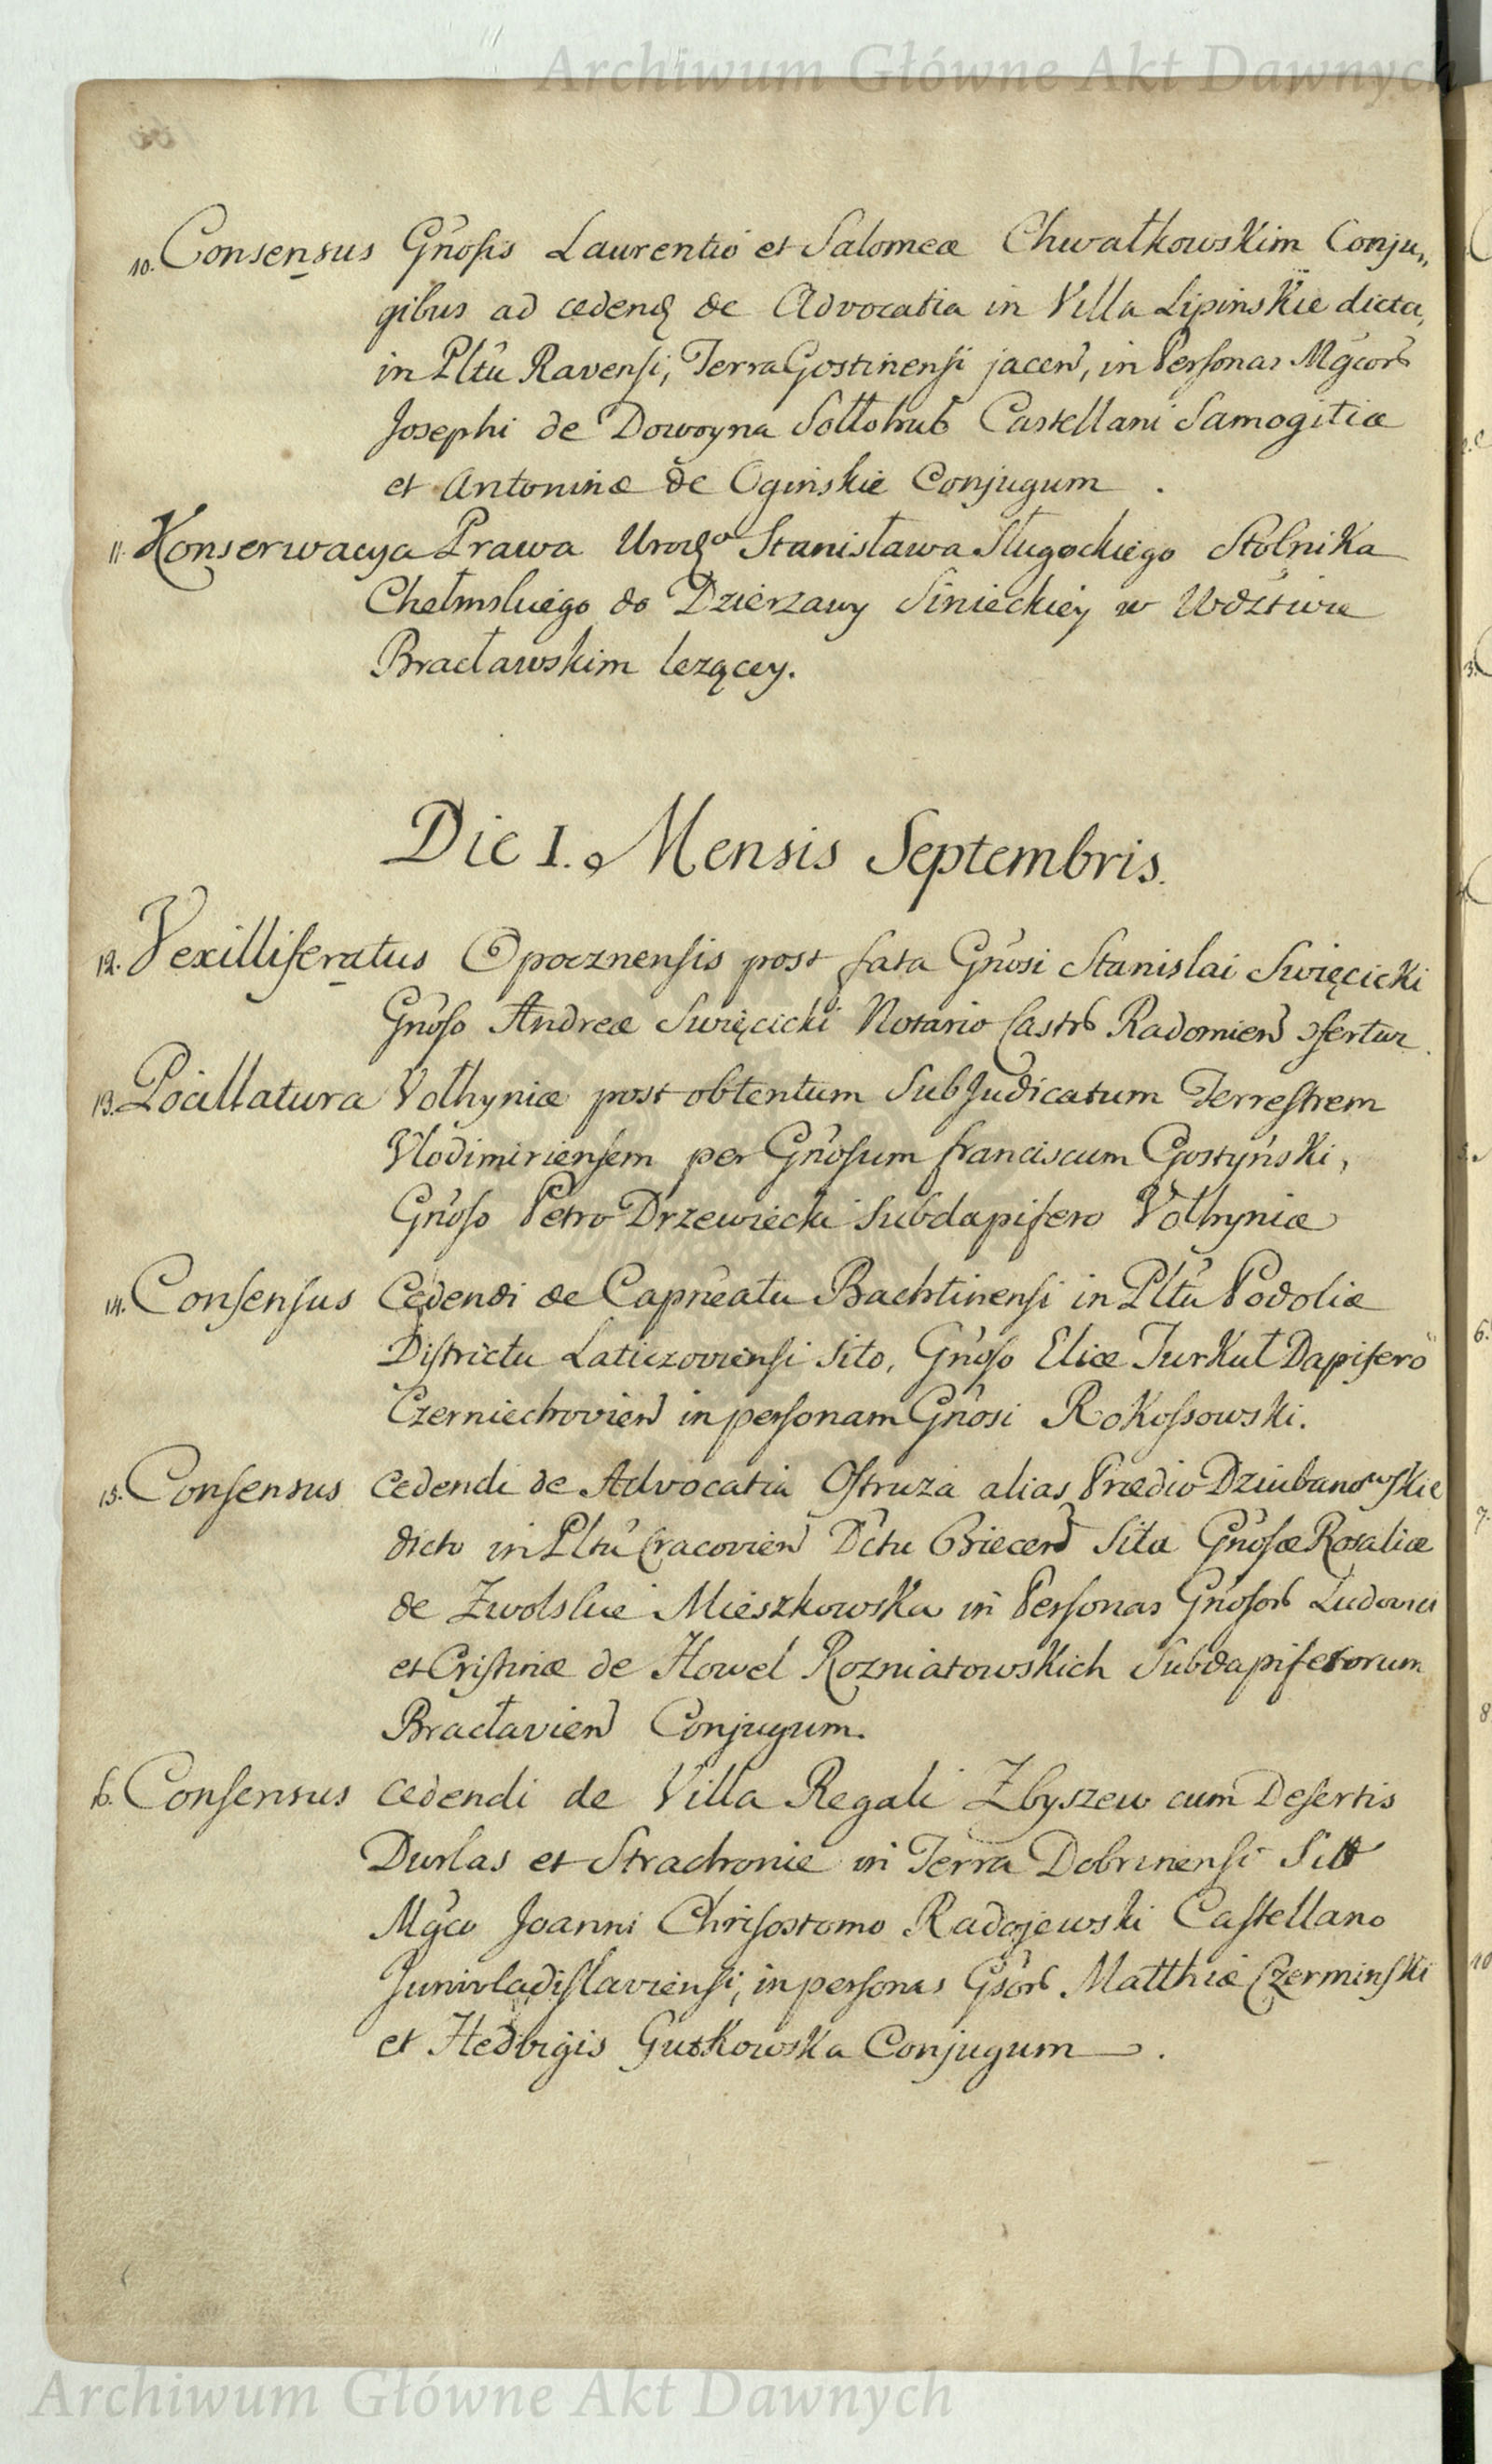 Archiwum Główne Akt Dawnych
10. Consensus Gnosis Laurentio et Salomeæ Chwałkowskim Conju„
gibus ad cedend de Advocatia in Villa Lipinskie dicta,
in Pltu Ravensi, Terra Gostinensi jacen, in Personas Mgcor
Josephi de Dowoyna Sołłohub Castellani Samogitiæ
et Antoninæ de Ogińskie Conjugum .
11. Konserwacya Prawa Urodgo Stanisława Sługockiego Stolnika
Chełmskiego do Dzierzawy Sinieckiey w Wdztwie
Bracławskim lezącey.
Die 1. Mensis Septembris.
12. Vexilliferatus Opocznensis post fata Gnosi Stanislai Swięcicki
Gnoso Andreæ Swięcicki Notario Castr Radomien ofertur.
13. Pocillatura Volhyniæ post obtentum SubJudicatum Terrestrem
Vlodimiriensem per Gnosum franciscum Gostyński,
Gnoso Petro Drzewiecki Subdapifero Volhyniæ
14. Consensus Cedendi de Capneatu Bachtinensi in Pltu Podoliæ
Districtu Laticzoviensi sito, Gnoso Eliæ Jurkuł Dapifero
Czerniechovien in personam Gnosi Rokossowski.
15. Consensus Cedendi de Advocatia Ostruza alias Prædio Dziubanowskie
dicto in Pltu Cracovien Dctu Biecen Sita Gnosæ Rosaliæ
de Zwolskie Mieszkowska in Personas Gnosor Ludovici
et Cristinæ de Howel Rozniatowskich Subdapiferorum
Bracłavien Conjugum.
16. Consensus cedendi de Villa Regali Zbyszew cum Desertis
Durlas et Strachonie in Terra Dobrinensi
Mgco Joanni Chrisostomo Radojewski Castellano
Junivladislaviensi, in personas Gsor Matthiæ Czerminski
et Hedvigis Gutkowska Conjugum .
Archiwum Główne Akt Dawnych